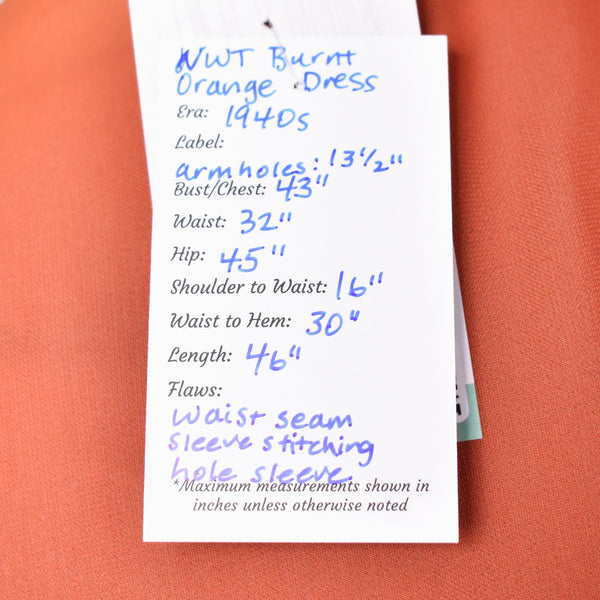 NWT Burnt
Orange Dress
Era: 1940s
Label:
armholes: 13 1/2"
Bust/Chest: 43"
Waist: 32"
Hip: 45"
Shoulder to Waist: 16"
Waist to Hem: 30"
Length: 46"
Flaws:
waist seam
sleeve stitching
hole sleeve
*Maximum measurements shown in
inches unless otherwise noted